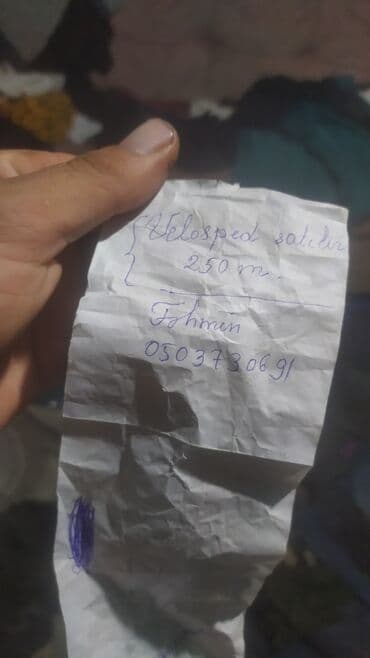 Velosped satılır
250 m.
Fəhmin
0503730691